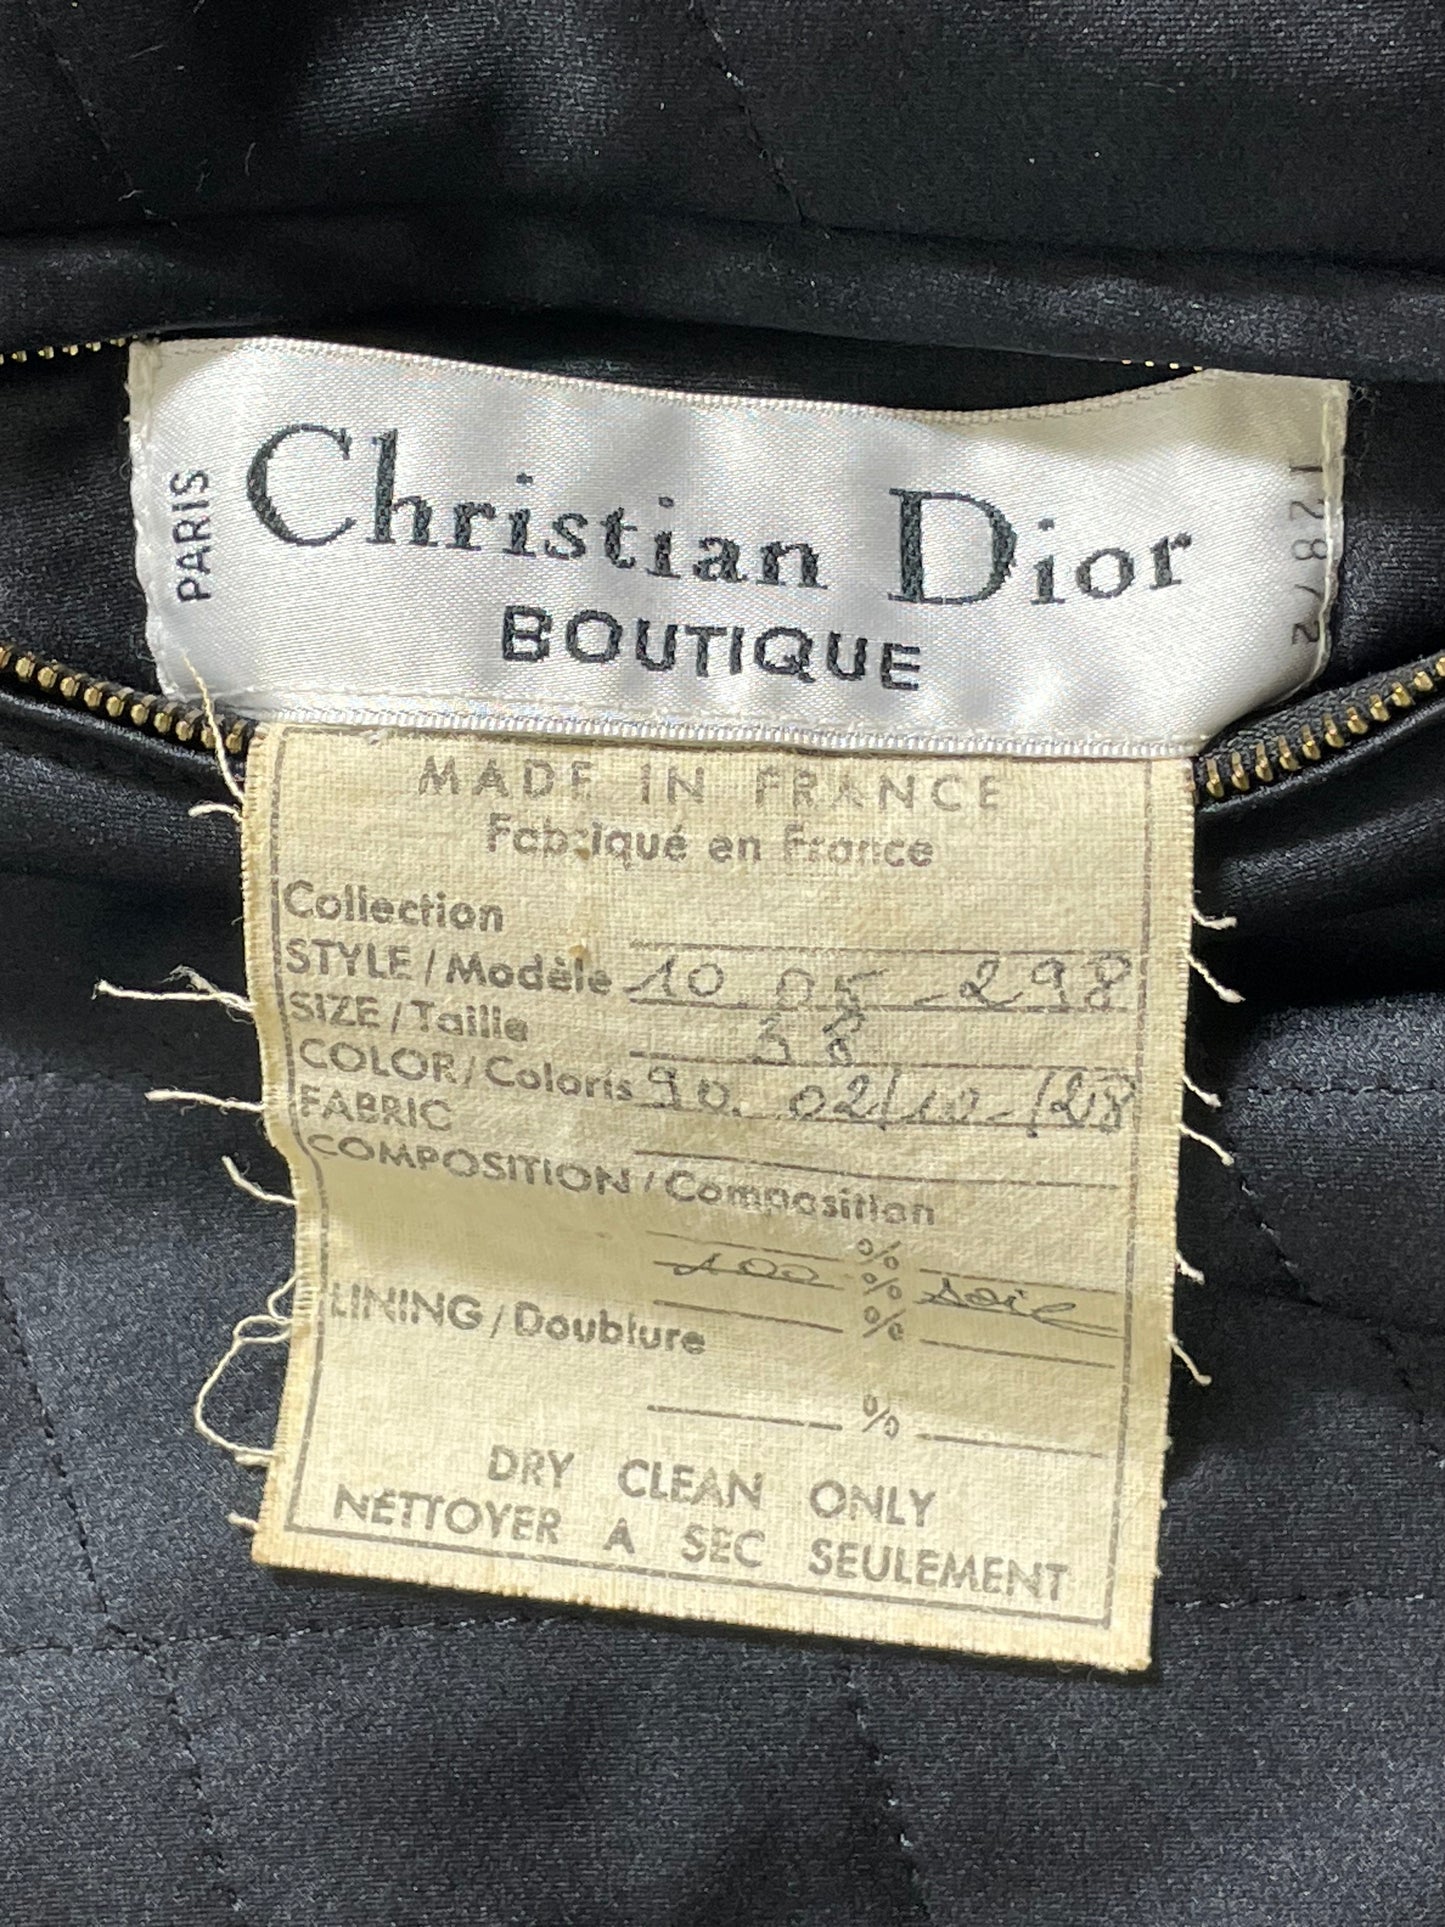 PARIS
Christian Dior
BOUTIQUE
12872
MADE IN FRANCE
Fabriqué en France
Collection
STYLE / Modèle 10.05-298
SIZE / Taille 38
COLOR / Coloris 90. 02/10-/28
FABRIC
COMPOSITION / Composition
%
100 % soie
%
LINING / Doublure
%
DRY CLEAN ONLY
NETTOYER A SEC SEULEMENT